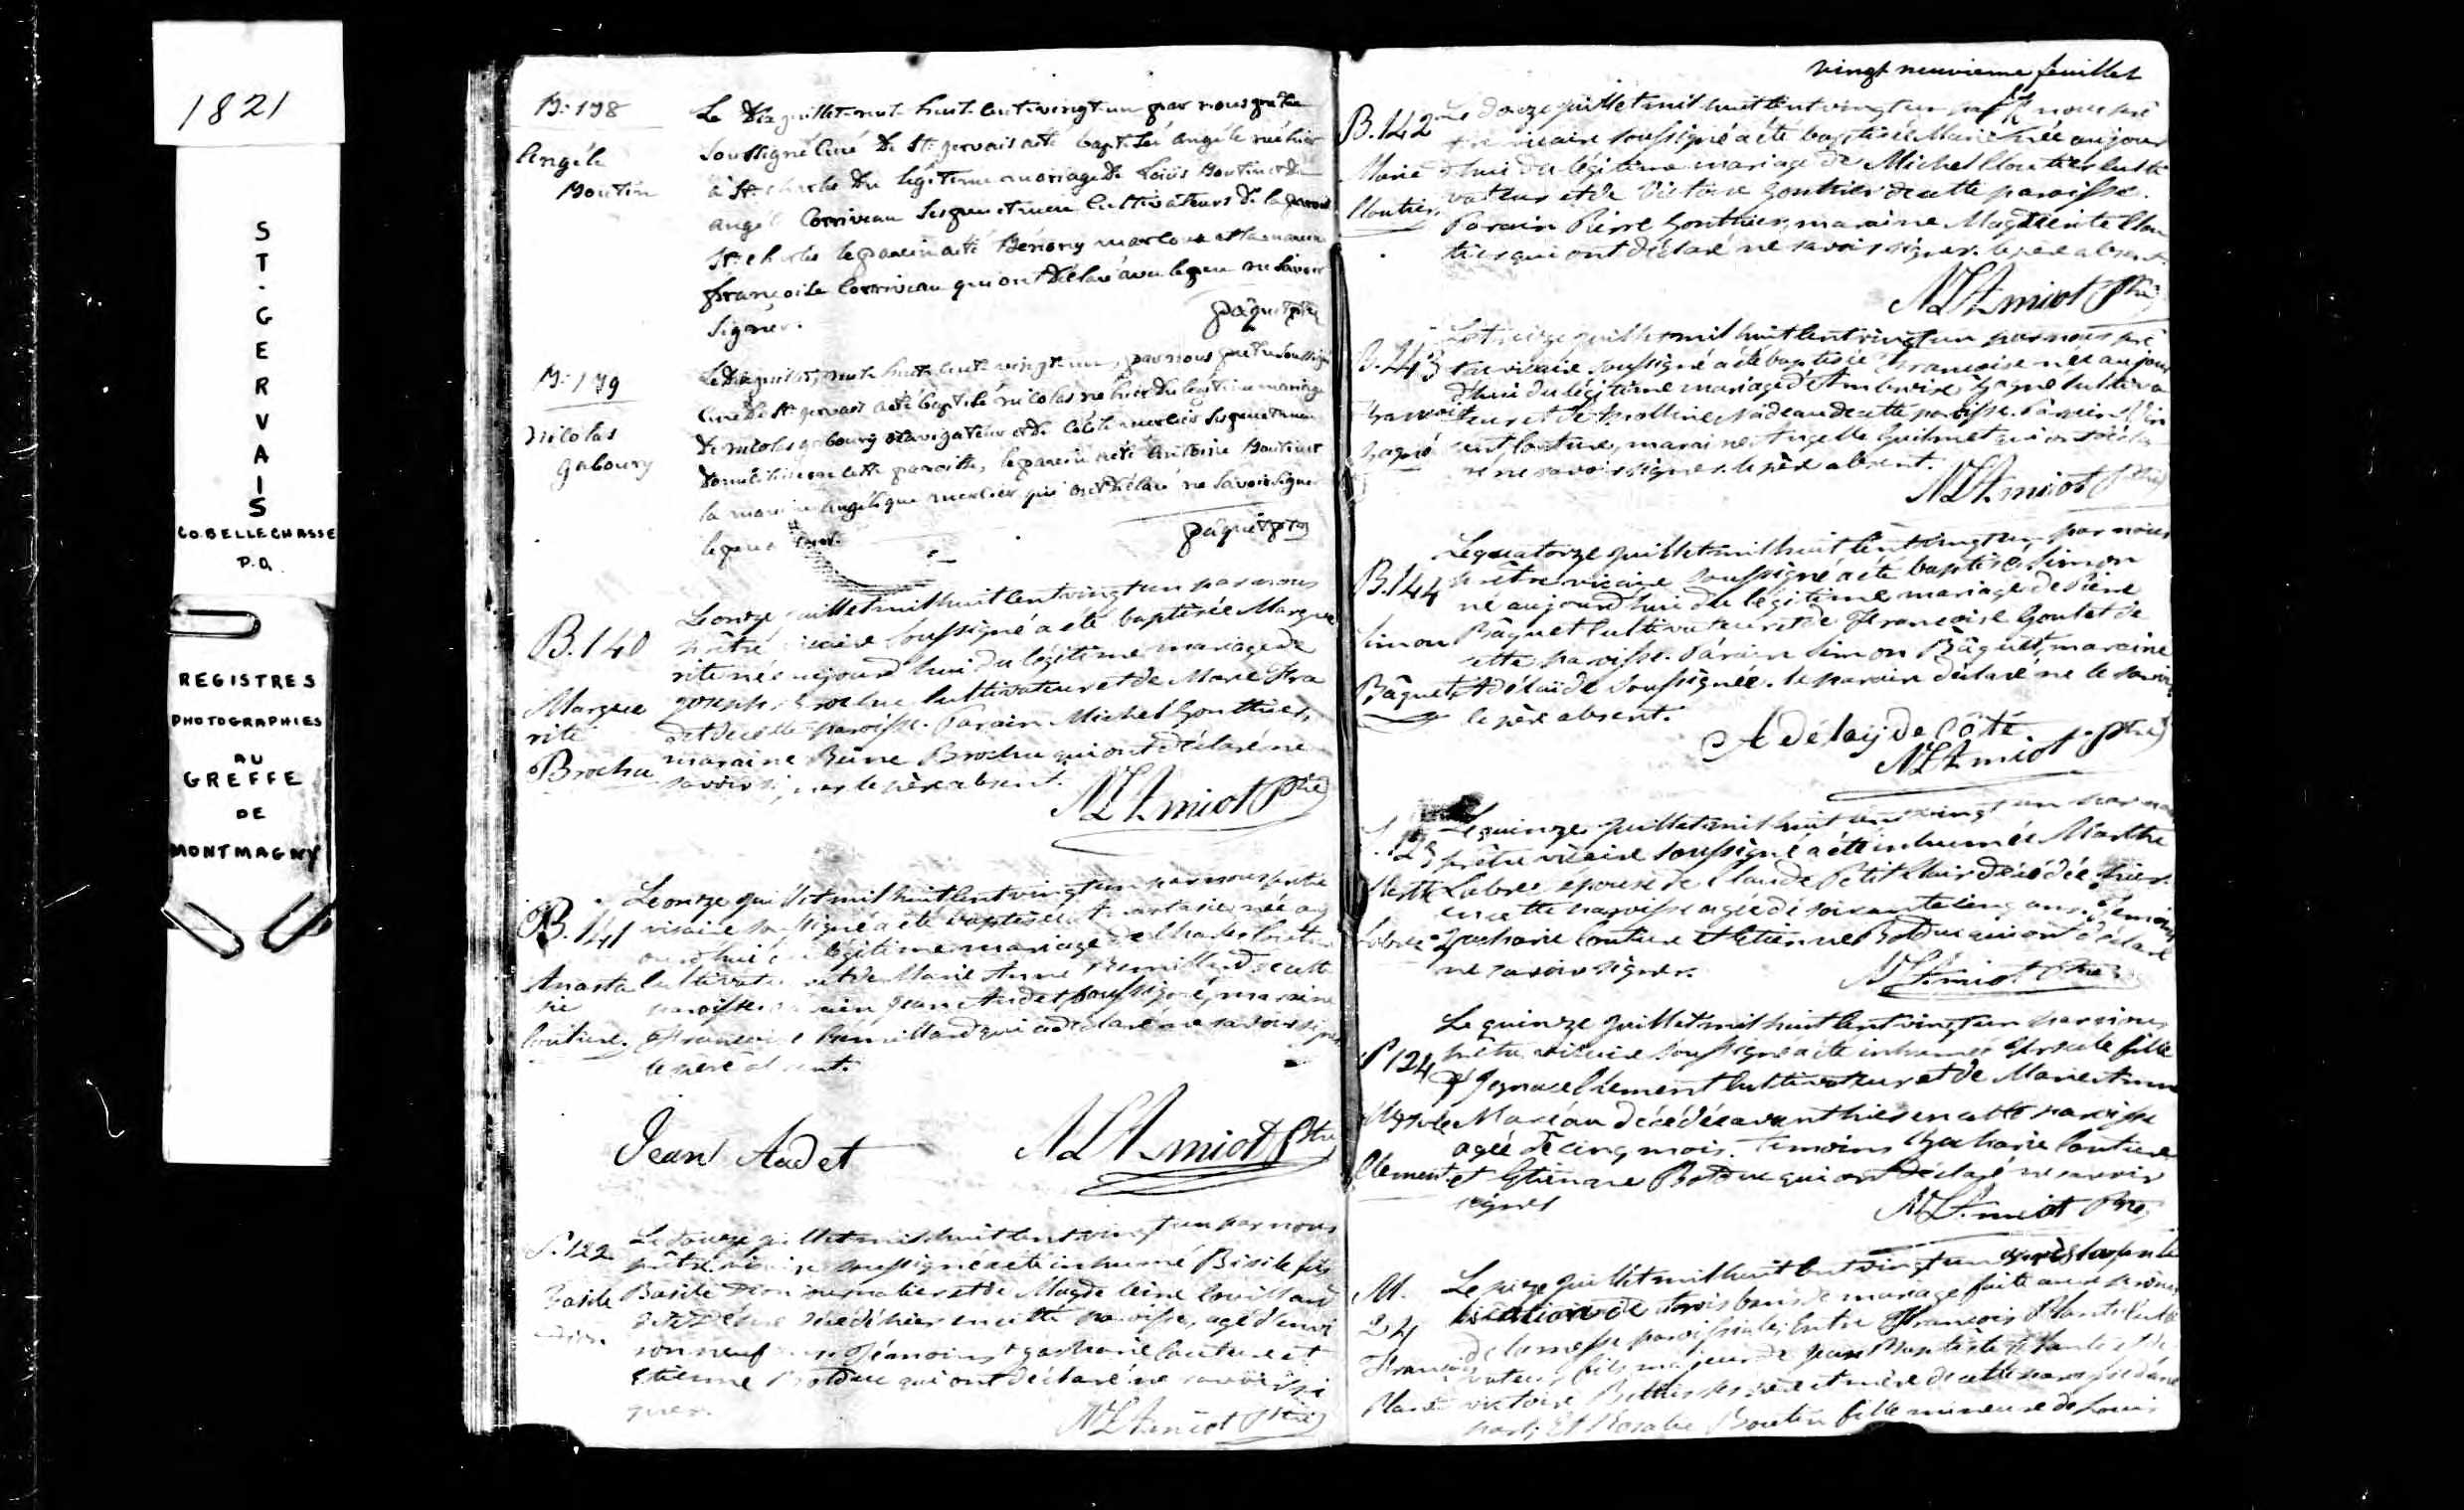 1821
ST. GERVAIS
CO. BELLECHASSE
P.Q.
REGISTRES
PHOTOGRAPHIES
AU
GREFFE
DE
MONTMAGNY
B. 138
Angéle
Boutin
Le Dix juillet mil huit cent vingt un par nous prêtre
soussigné curé de St. gervais a été baptisé angéle née hier
à St. charles du légitime mariage de Loüis Boutin et de
angél Corriveau ses pere et mere cultivateurs de la paroisse
St. charles le parein a été Bénony et la mareine
françoise Corriveau qui ont déclaré avec le pere ne savoir
signer.
paquet ptre
B. 139
Nicolas
gaboury
Le dix juillet, mil huit cent vingt un, par nous prêtre soussigné
curé de St. gervais a été baptisé nicolas né hier du légitime mariage
de nicolas gaboury navigateur et de mercier ses pere et mere
domiciliés en cette paroisse, le parein a été antoine Boutin et
la mareine angélique mercier qui ont déclaré ne savoir signer
le pere
paquet ptre
B. 140
Margue
rite
Brochu
Le onze juillet mil huit cent vingt un par nous
prêtre vicaire soussigné a été baptisée Margue
rite née aujourd'hui du légitime mariage de
joseph Brochu cultivateur et de Marie
de cette paroisse. Parain Michel Gonthier,
maraine Reine Brochu qui ont déclaré ne
savoir signer le père absent.
NL Amiot Ptre
B. 141
Anasta
sie
Couture.
Le onze juillet mil huit cent vingt un par nous prêtre
vicaire soussigné a été baptisée Anastasie née auj
ourd'hui du légitime mariage de Charles Couture
cultivateur et de Marie Anne Remillard de cette
paroisse. Parain Jean Audet soussigné, maraine
Françoise Remillard qui a déclaré ne savoir signer
le père absent.
Jean Audet
NL Amiot Ptre
S. 122
Basile
Dion
Le douze juillet mil huit cent vingt un par nous
prêtre vicaire soussigné a été inhumé Basile fils
Basile Dion journalier et de Magdeleine Couillard
décédé hier en cette paroisse, agé d'envi
ron neuf Témoins Zacharie Couture et
Etienne Botduc qui ont déclaré ne savoir si
gner.
NL Amiot Ptre
vingt neuvieme feuillet
B. 142
Marie
Cloutier.
Le douze juillet mil huit cent vingt un par nous prê
tre vicaire soussigné a été baptisée Marie née aujour
d'hui du légitime mariage de Michel Cloutier culti
vateur et de Victoire Gonthier de cette paroisse.
Parain Pierre Gonthier, maraine Magdeleine Clou
tier qui ont déclaré ne savoir signer. le père absent.
NL Amiot Ptre
B. 143
Françoise
Gagné
Le treize juillet mil huit cent vingt un par nous prê
tre vicaire soussigné a été baptisée Françoise née aujour
d'hui du légitime mariage d'Ambroise Gagné cultiva
teur et de Nadeau de cette paroisse. Parain Vin
cent Couture, maraine Angelle Guilmet qui ont décla
ré ne savoir signer. le père absent.
NL Amiot Ptre
B. 144
Simon
Bâquet
Le quatorze juillet mil huit cent vingt un par nous
prêtre vicaire soussigné a été baptisé Simon
né aujourd'hui du légitime mariage de Pierre
Bâquet cultivateur et de Françoise Goulet de
cette paroisse. Parain Simon Bâquet, maraine
Adélaïde soussignée. le parain déclaré ne le savoir
le père absent.
Adélayde Côté
NL Amiot Ptre
S. 123
Marthe
Labrec
Le quinze juillet mil huit cent vingt un par nous
prêtre vicaire soussigné a été inhumée Marthe
Labrec épouse de Claude Petitclair décédée hier
en cette paroisse agée de soixante cinq ans. Témoins
Zacharie Couture et Etienne Botduc qui ont déclaré
ne savoir signer.
NL Amiot Ptre
S 124
Ursule
Clement
Le quinze juillet mil huit cent vingt un par nous
prêtre vicaire soussigné a été inhumée Ursule fille
d'Ignace Clement cultivateur et de Marie Anne
décédée avant hier en cette paroisse
agée de cinq mois. Temoins Zacharie Couture
et Etienne Botduc qui ont déclaré ne savoir
signer
NL Amiot Ptre
M.
24
François
Plante
Le seize juillet mil huit cent vingt un après la publi
cation de trois bans de mariage faite au prône
de la messe paroissiale; Entre François Plante culti
vateur, fils majeur de Jean Baptiste Plante et de
victoire ses père et mère de cette paroisse d'une
part; Et Rosalie Boutin fille mineure de Louis